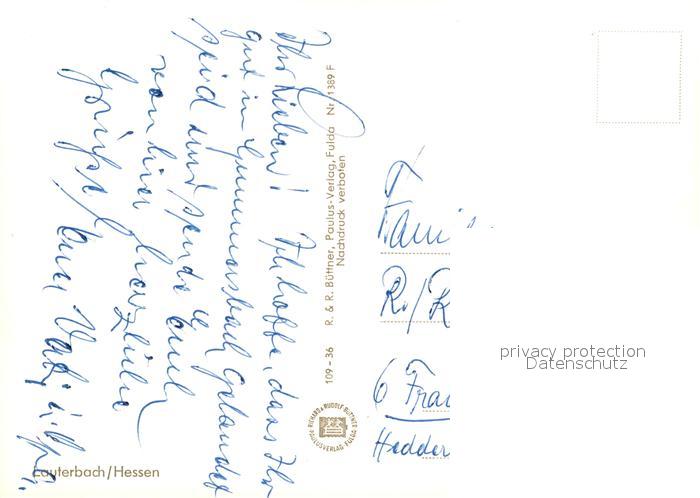 Ihr Lieben! Ich hoffe, dass Ihr
gut in Gummersbach gelandet
seid und sende Euch
von hier herzliche
Grüsse,
Euer Vati u.
R. & R. Büttner, Paulus-Verlag, Fulda Nr. 1389 F
Nachdruck verboten
109-36
RICHARD & RUDOLF BÜTTNER
PAULUSVERLAG FULDA
Lauterbach/Hessen
Fami
R./R
6 Fran
Hedder
privacy protection
Datenschutz